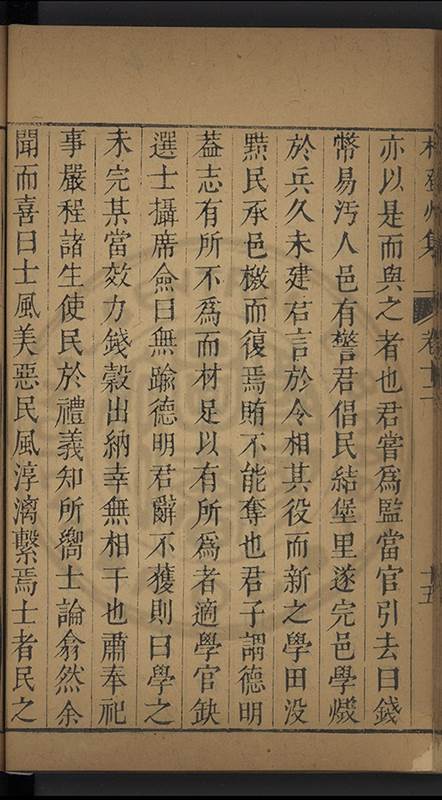 亦以是而與之者也君嘗為監當官引去曰錢
幣易汚人邑有警君倡民結堡里遂完邑學燬
於兵久未建君言於令相其役而新之學田没
黠民承邑檄而復焉賄不能奪也君子謂德明
葢志有所不為而材足以有所為者適學官缺
選士攝席僉曰無踰德明君辭不獲則曰學之
未完某當效力錢穀出納幸無相干也肅奉祀
事嚴程諸生使民於禮義知所嚮士論翕然余
聞而喜曰士風美惡民風淳漓繫焉士者民之
集
卷十二
十五